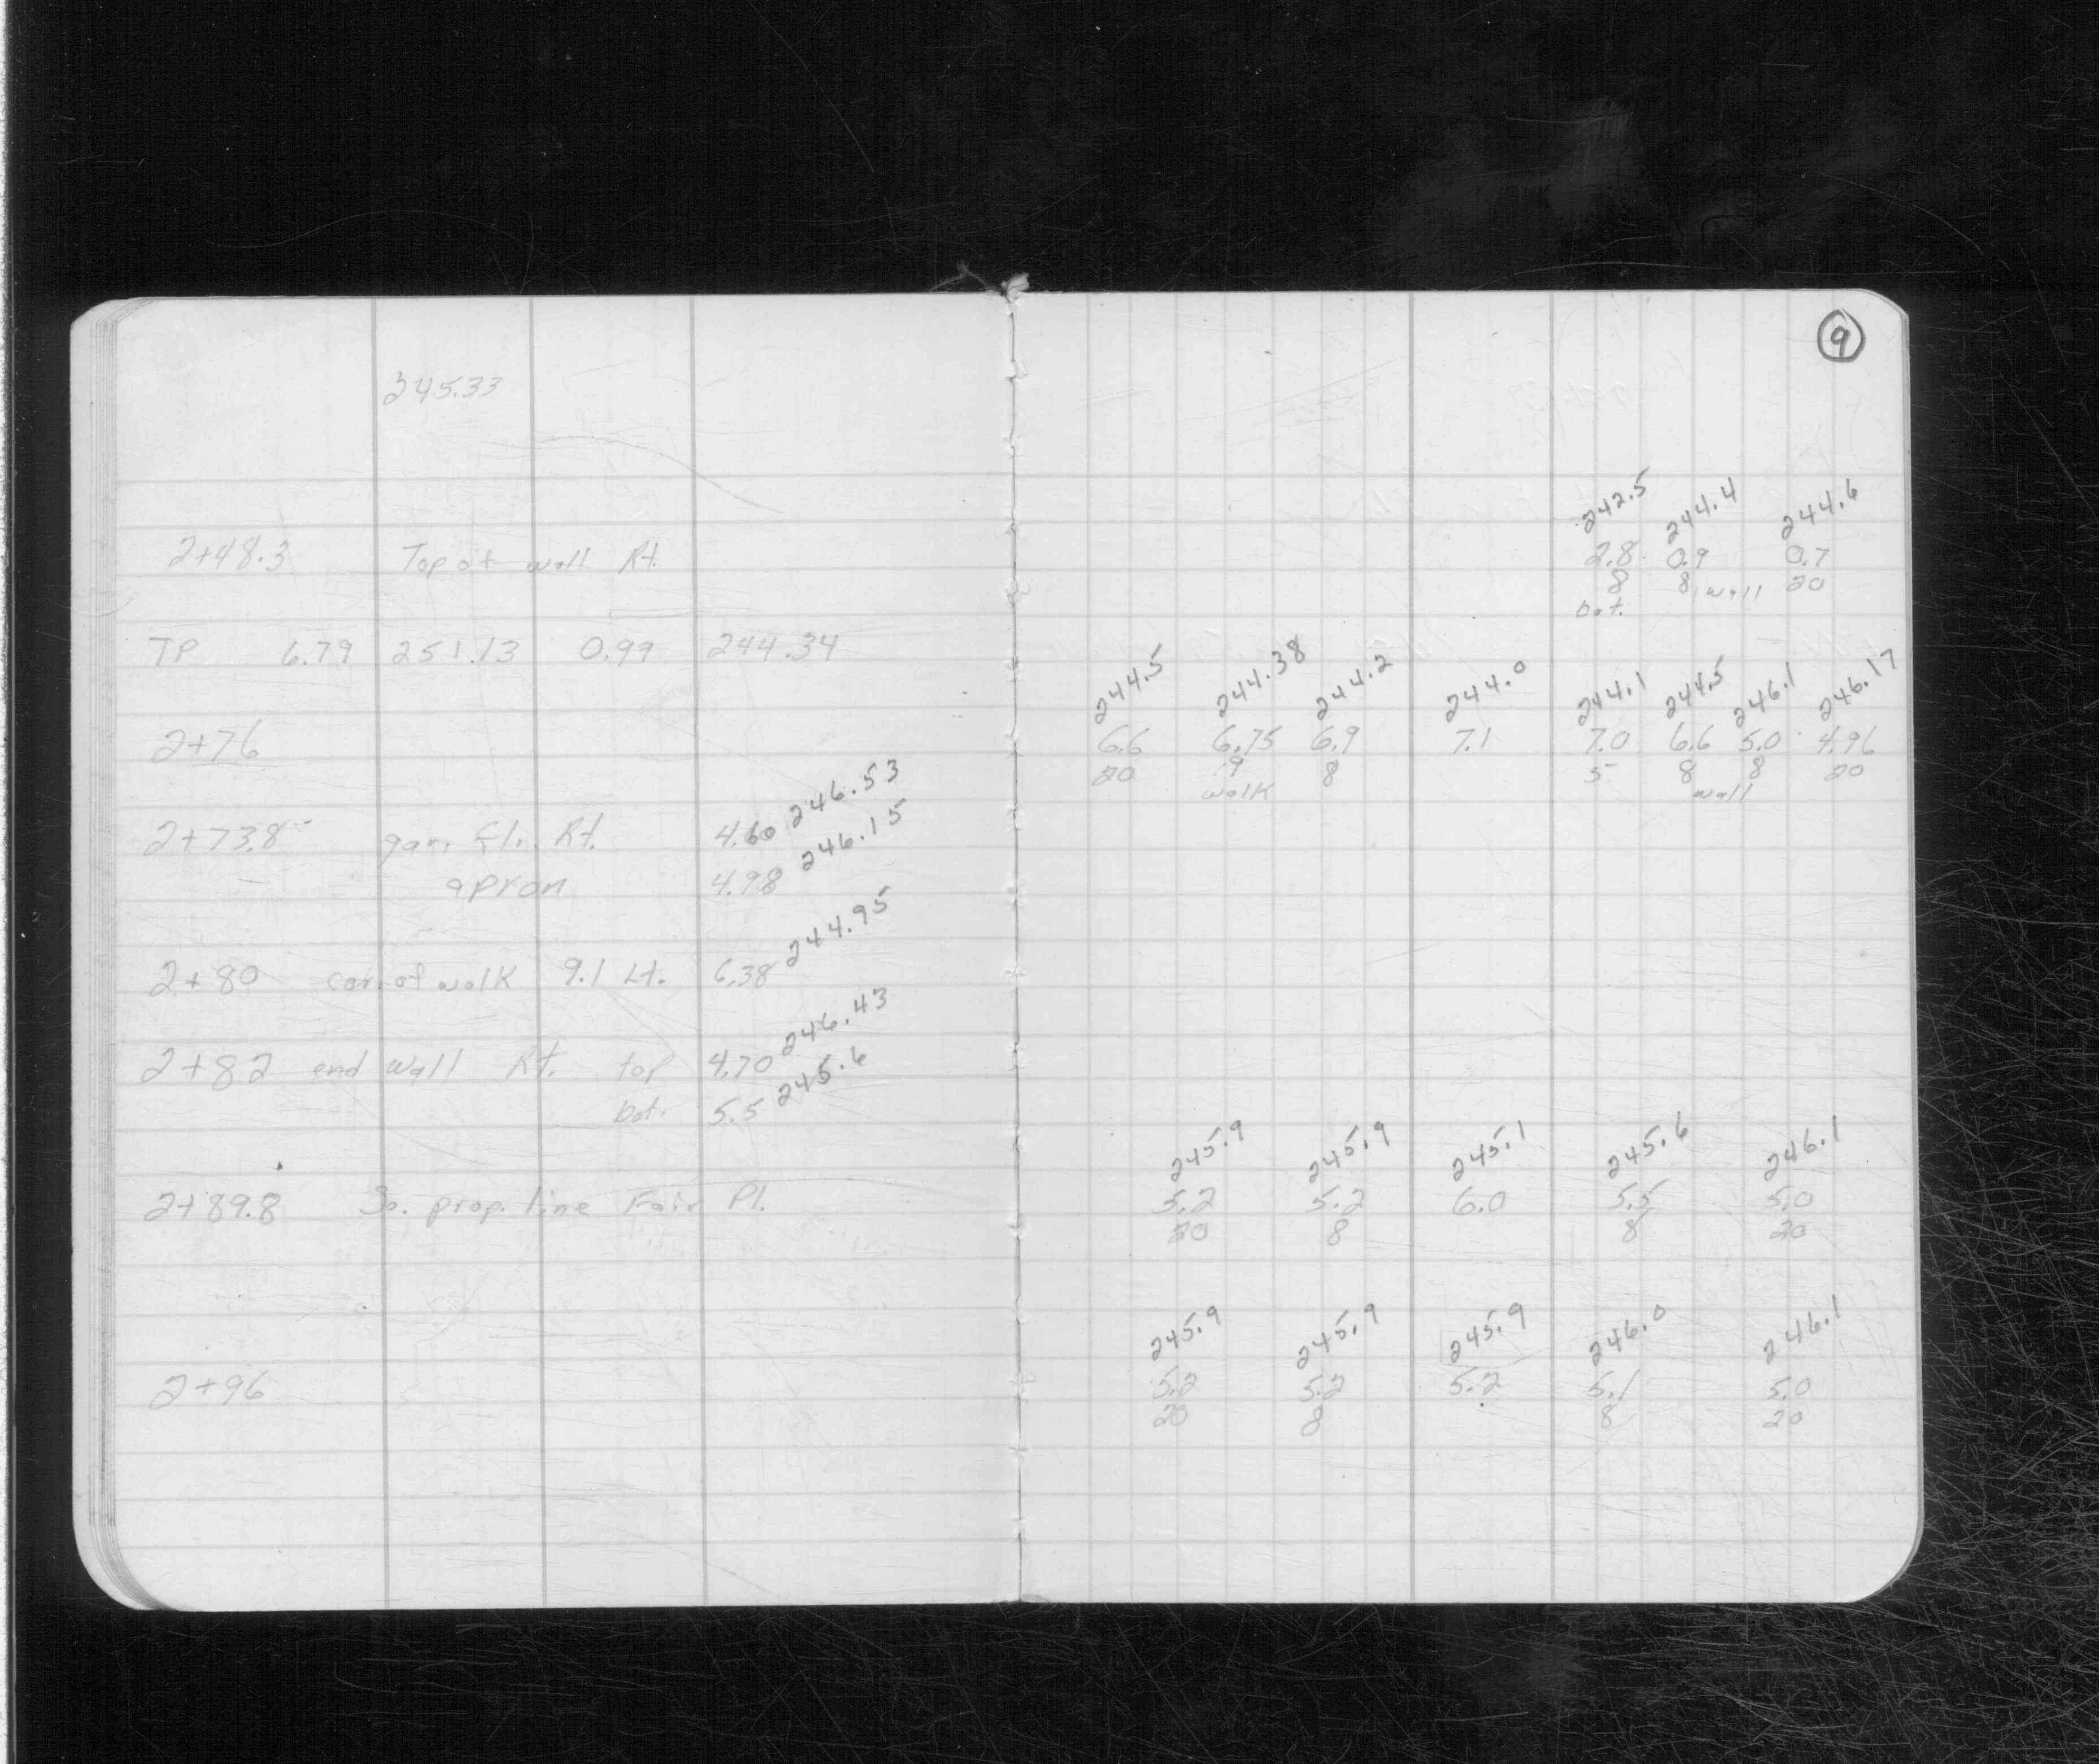 9
245.33
242.5 244.4 244.6
2+48.3 Top of wall Rt. 2.8 0.9 0.7
8 8 wall 20
bot.
TP 6.79 251.13 0.99 244.34
244.5 244.38 244.2 244.0 244.1 244.5 246.1 246.17
2+76 6.6 6.75 6.9 7.1 7.0 6.6 5.0 4.96
20 9 8 5 8 8 20
walk wall
2+73.8 gar. fl. Rt. 4.60 246.53
apron 4.98 246.15
2+80 cor. of walk 9.1 Lt. 6.38 244.95
2+82 end wall Rt. top 4.70 246.43
bot. 5.5 245.6
245.9 245.9 245.1 245.6 246.1
2+89.8 So. prop. line Fair Pl. 5.2 5.2 6.0 5.5 5.0
20 8 8 20
245.9 245.9 245.9 246.0 246.1
2+96 5.2 5.2 5.2 5.1 5.0
20 8 8 20